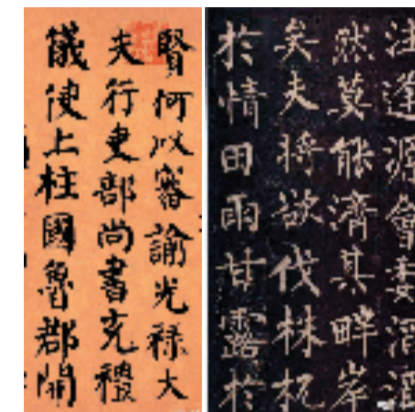 賢何以審諭光祿大
夫行吏部尚書充禮
儀使上柱國魯郡開
注逢源會委滔滔
然莫能濟其畔岸
矣夫將欲伐株杌
於情田雨甘露於